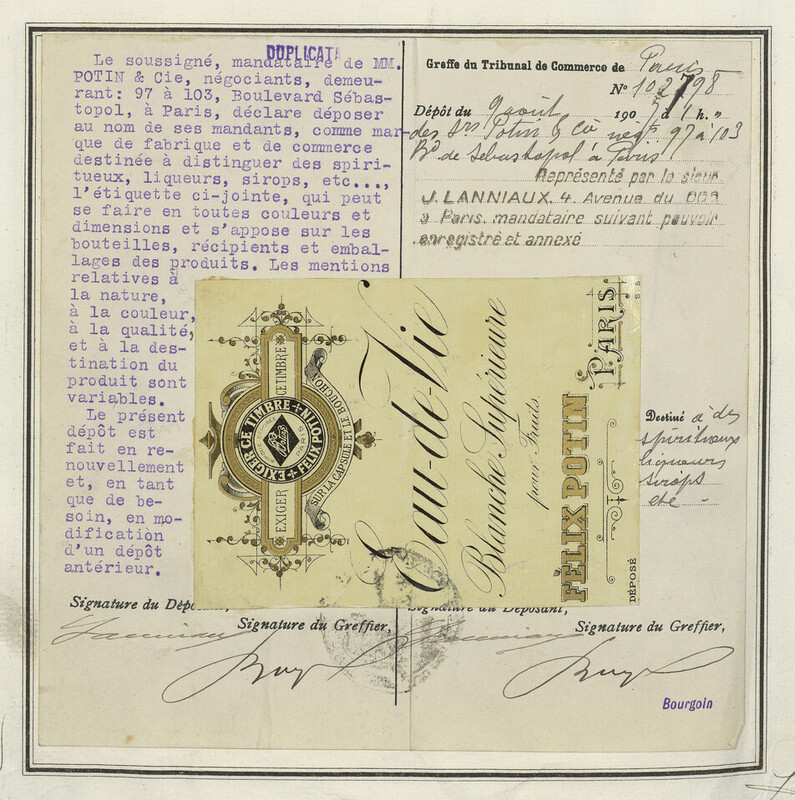 DUPLICATA
Le soussigné, mandataire de MM.
POTIN & Cie, négociants, demeu-
rant: 97 à 103, Boulevard Sébas-
topol, à Paris, déclare déposer
au nom de ses mandants, comme mar-
que de fabrique et de commerce
destinée à distinguer des spiri-
tueux, liqueurs, sirops, etc...,
l'étiquette ci-jointe, qui peut
se faire en toutes couleurs et
dimensions et s'appose sur les
bouteilles, récipients et embal-
lages des produits. Les mentions
relatives à
la nature,
à la couleur,
à la qualité,
et à la des-
tination du
produit sont
variables.
Le présent
dépôt est
fait en re-
nouvellement
et, en tant
que de be-
soin, en mo-
dification
d'un dépôt
antérieur.
Signature du Déposant,
Signature du Greffier,
Greffe du Tribunal de Commerce de Paris
N° 102798
Dépôt du 9 août 1907 à 1 h. "
des Srs Potin & Cie négts 97 à 103
Bd de Sébastopol à Paris
Représenté par le sieur
J. LANNIAUX. 4. Avenue du
à Paris. mandataire suivant pouvoir
enregistré et annexé
Destiné à des
spiritueux
liqueurs
sirops
etc -
Signature du Déposant,
Signature du Greffier,
Bourgoin
EXIGER CE TIMBRE
SUR LA CAPSULE ET LE BOUCHON
EXIGER CE TIMBRE
FELIX POTIN
Potin
PARIS
Eau-de-Vie
Blanche Supérieure
pour Fruits
FÉLIX POTIN
PARIS
DÉPOSÉ